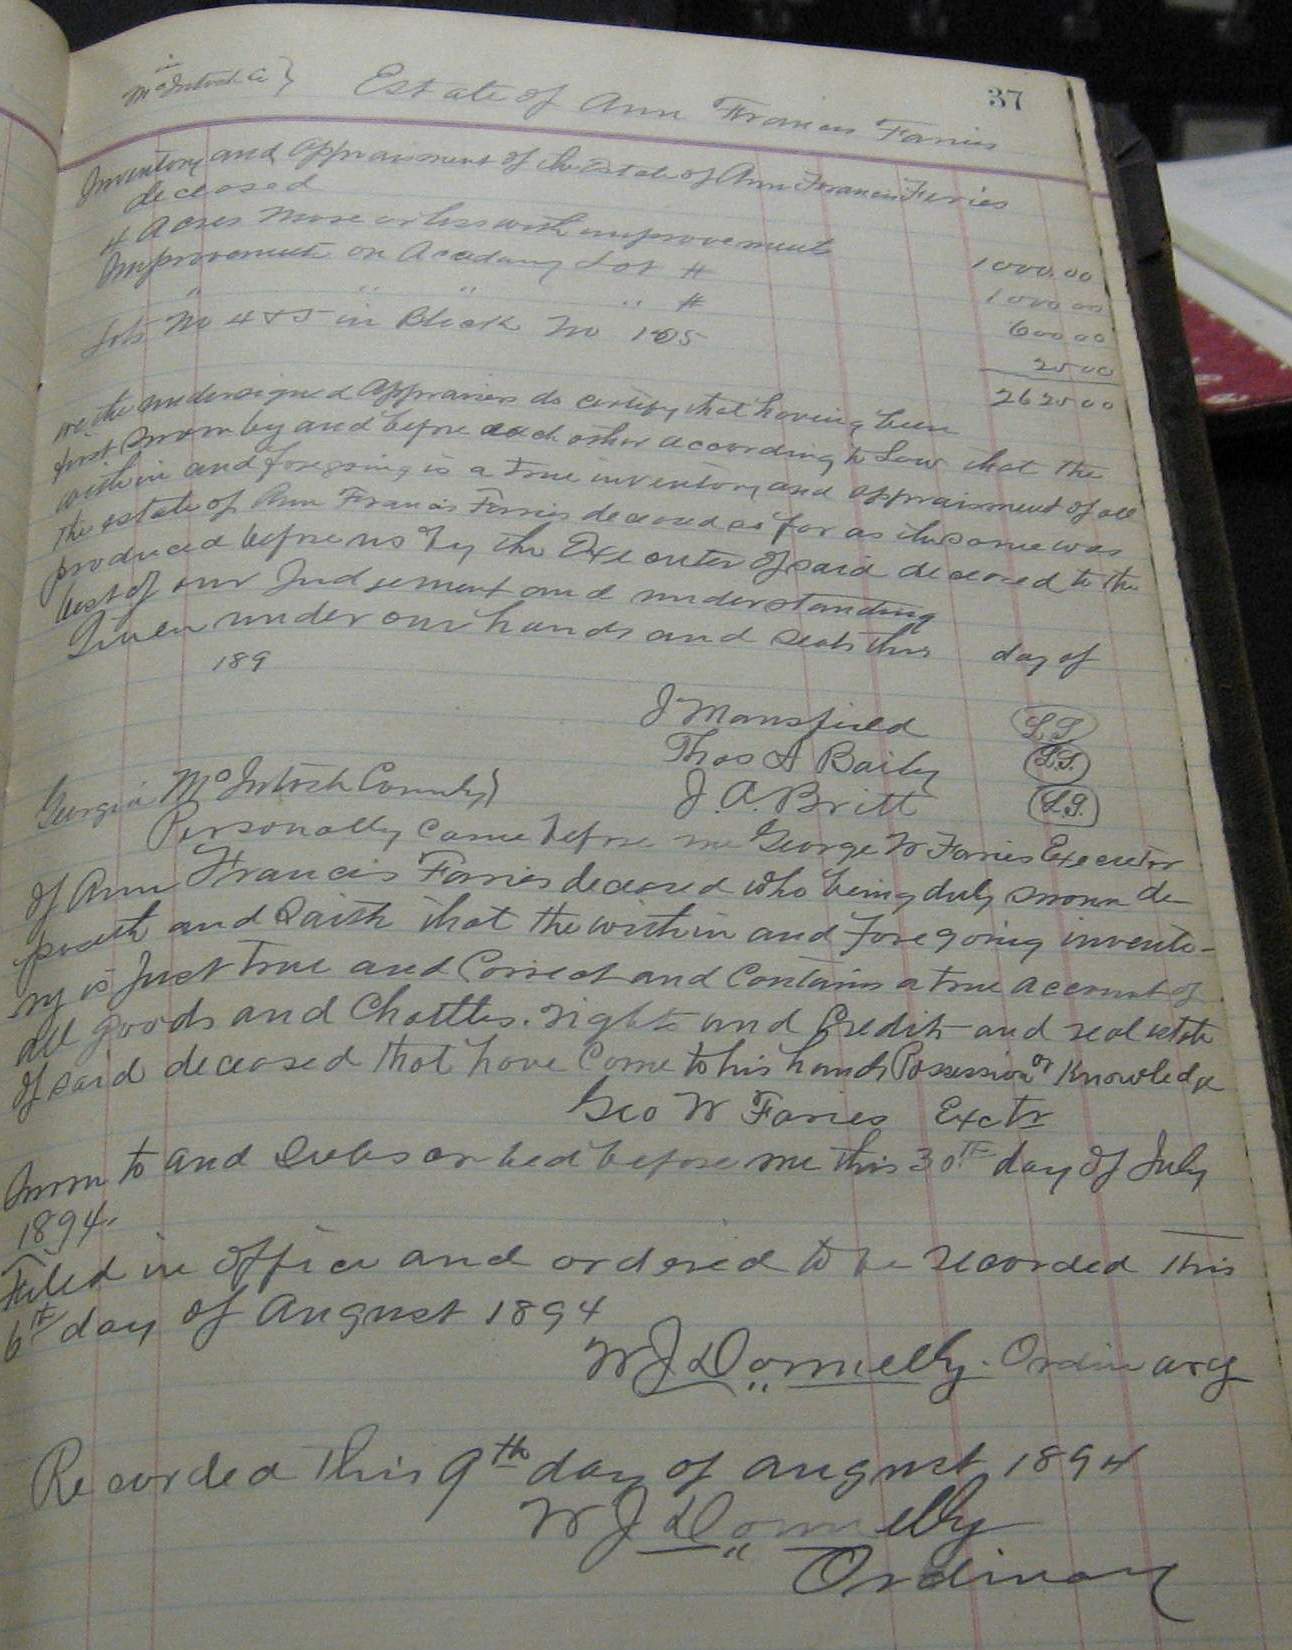 in
McIntosh Co } Estate of Ann Francis Faries 37
Inventory and appraisment of the Estate of Ann Francis Faries
deceased
4 Acres more or less with improvements 1000.00
Improvements on Academy Lot # 1000 00
" " " " # 600 00
Lots No 4 & 5 in Block No 25 00
2625 00
we the undersigned appraisers do certify that having been
first sworn by and before each other according to Law that the
within and foregoing is a true inventory and appraisment of all
the estate of Ann Francis Faries deceased as far as the same was
produced before us by the Executer of said deceased to the
best of our Judgement and understanding
Given under our hands and seals this day of
189
J Mansfield L.S.
Thos A Baily L.S.
J. A. Britt L.S.
Georgia McIntosh County }
Personally came before me George W Faries Executor
of Ann Francis Faries deceased who being duly sworn de-
poseth and Saith that the within and foregoing invento-
ry is Just True and Correct and Contains a true account of
all goods and Chattles, rights and Credits and real estate
of said deceased that have Come to his hands Possession or Knowledge
Geo W Faries Exctr
Sworn to and Subscribed before me this 30th day of July
1894.
Filed in office and ordered to be recorded this
6th day of August 1894
W J Donnelly. Ordinary
Recorded this 9th day of august 1894
W J Donnelly
Ordinary